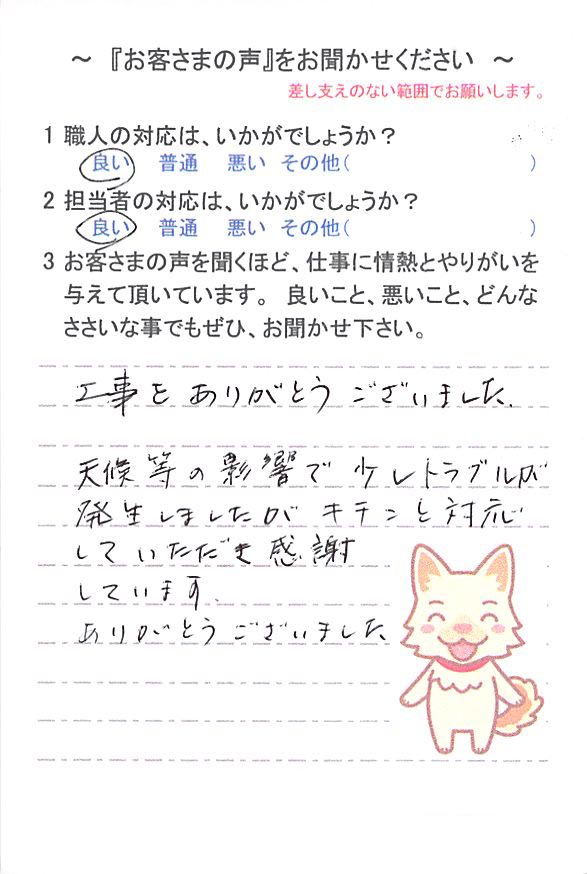 ～ 『お客さまの声』をお聞かせください ～
差し支えのない範囲でお願いします。
1 職人の対応は、いかがでしょうか？
良い 普通 悪い その他( )
2 担当者の対応は、いかがでしょうか？
良い 普通 悪い その他( )
3 お客さまの声を聞くほど、仕事に情熱とやりがいを
与えて頂いています。 良いこと、悪いこと、どんな
ささいな事でもぜひ、お聞かせ下さい。
工事をありがとうございました。
天候等の影響で少しトラブルが
発生しましたがキチンと対応
していただき感謝
しています。
ありがとうございました